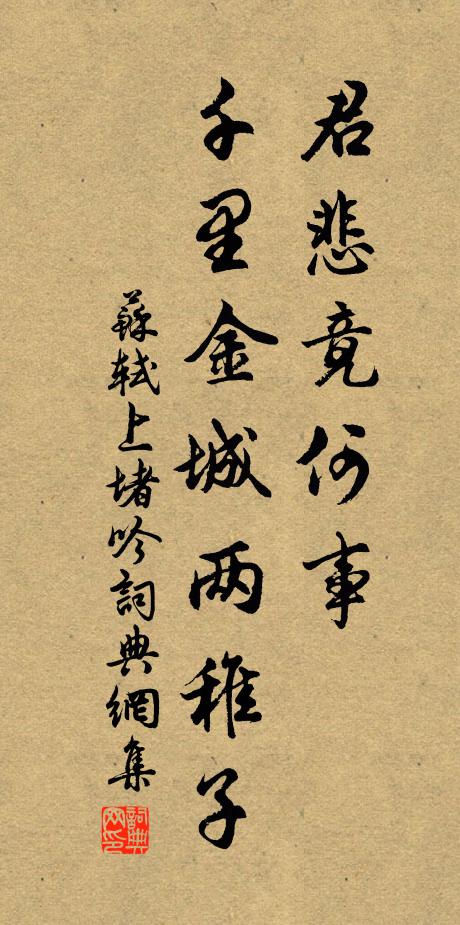 君悲竟何事
千里金城两稚子
蘇軾上堵吟詞典網集
詞典網印